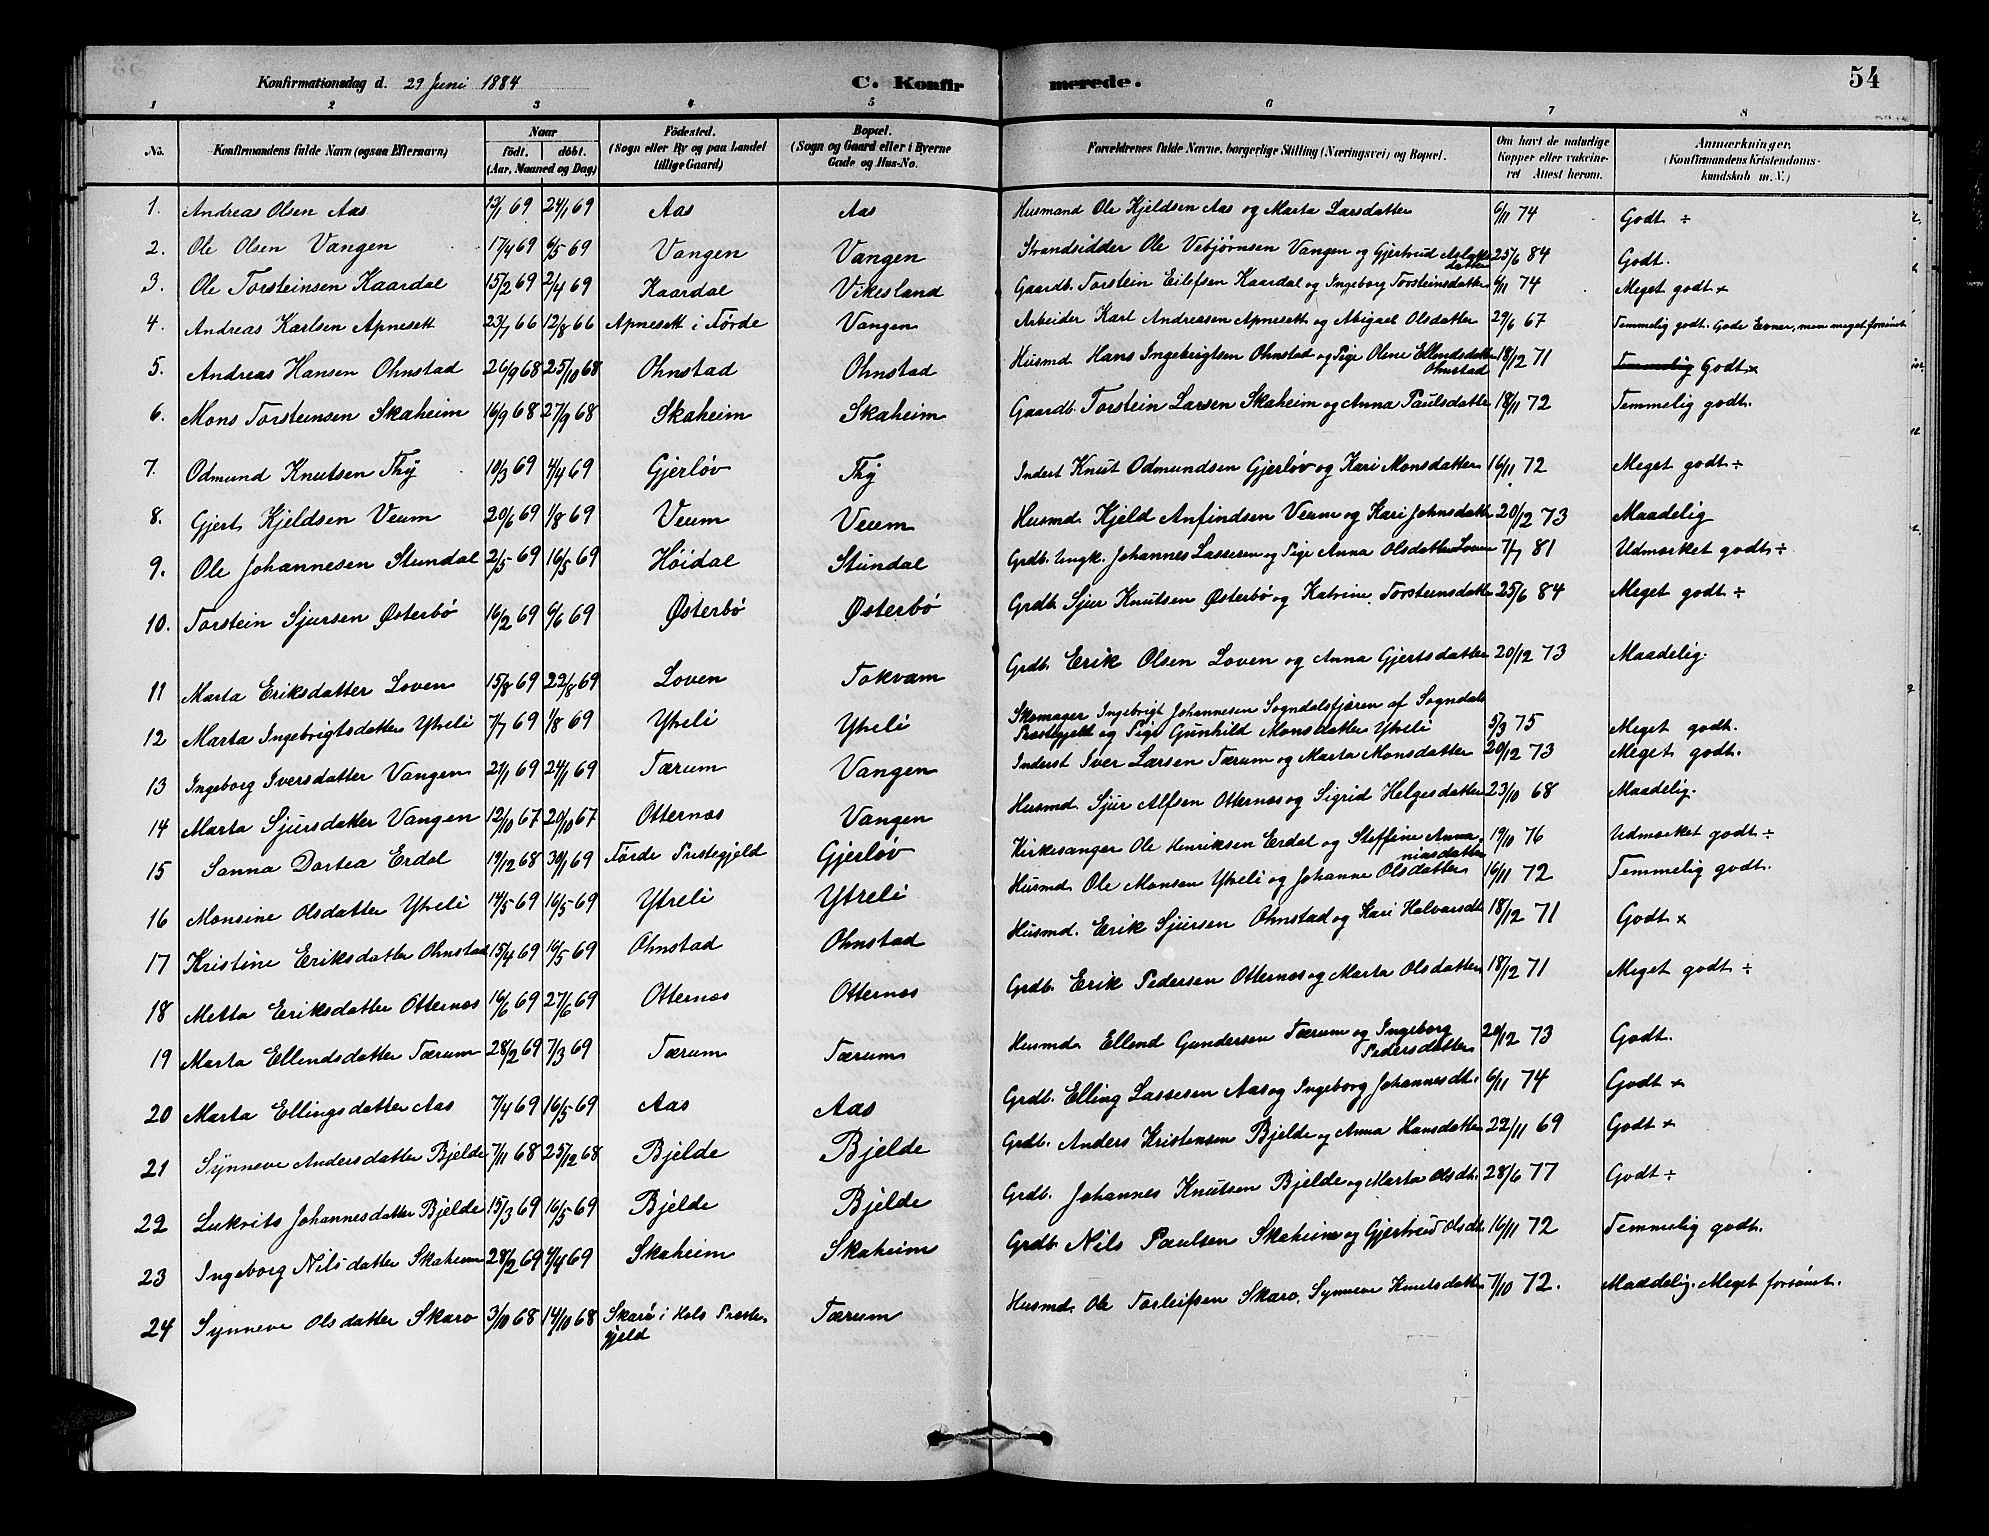 Konfirmationsdag d. 29 Juni 1884 C. Konfirmerede. 54
1 2 3 4 5 6 7 8
No. Konfirmandens fulde Navn (ogsaa Efternavn) Naar födt. döbt. (Aar, Maaned og Dag) Födested. (Sogn eller By og paa Landet tillige Gaard) Bopæl. (Sogn og Gaard eller i Byerne Gade og Hus-No. Forældrenes fulde Navne, borgerlige Stilling (Næringsvei) og Bopæl. Om havt de naturlige Kopper eller vakcineret Attest herom. Anmærkninger, (Konfirmandens Kristendomskundskab m.V.)
1. Andreas Olsen Aas 13/1 69 24/1 69 Aas Aas Husmand Ole Kjeldsen Aas og Marta Larsdatter 6/11 74 Godt ÷
2. Ole Olsen Vangen 17/4 69 6/5 69 Vangen Vangen Strandsidder Ole Vebjørnsen Vangen og Gjertrud Aslaksdatter 25/6 84 Godt.
3. Ole Torsteinsen Kaardal 15/2 69 2/4 69 Kaardal Vikesland Gaardb. Torstein Eilefsen Kaardal og Ingeborg Torsteinsdatter 6/11 74 Meget godt ×
4. Andreas Karlsen Apnesett 23/7 66 12/8 66 Apnesett i Förde Vangen Arbeider Karl Andreasen Apnesett og Abigael Olsdatter 29/6 67 Temmelig godt. Gode Evner, men meget forsömt
5. Andreas Hansen Ohnstad 26/9 68 25/10 68 Ohnstad Ohnstad Husmd Hans Ingebrigtsen Ohnstad og Pige Olene Ellendsdatter Ohnstad 18/12 71 Temmelig Godt ×
6. Mons Torsteinsen Skaheim 16/9 68 27/9 68 Skaheim Skaheim Gaardb. Torstein Larsen Skaheim og Anna Paulsdatter 18/11 72 Temmelig godt.
7. Odmund Knutsen Thÿ 10/3 69 4/4 69 Gjerløv Thÿ Inderst Knut Odmundsen Gjerløv og Kari Monsdatter 16/11 72 Meget godt ÷
8. Gjert Kjeldsen Veum 20/6 69 1/8 69 Veum Veum Husmd. Kjeld Anfindsen Veum og Kari Johnsdatter 20/12 73 Maadelig
9. Ole Johannesen Stundal 2/5 69 16/5 69 Höidal Stundal Grdb. Ungk. Johannes Lassesen og Pige Anna Olsdatter Loven 7/7 81 Udmærket godt ÷
10. Torstein Sjursen Østerbø 16/2 69 6/6 69 Østerbø Østerbø Grdb. Sjur Knutsen Østerbø og Katrine Torsteinsdatter 25/6 84 Meget godt ÷
11 Marta Eriksdatter Loven 15/8 69 22/8 69 Loven Tokvam Grdb. Erik Olsen Loven og Anna Gjertsdatter 20/12 73 Maadelig.
12 Marta Ingebrigtsdatter Ytreli 7/7 69 1/8 69 Ytreli Ytreli Skomager Ingebrigt Johannesen Sogndalsfjören af Sogndals Præstegjeld og Pige Gunhild Monsdatter Ytreli 5/3 75 Meget godt.
13 Ingeborg Iversdatter Vangen 21/1 69 24/1 69 Tærum Vangen Inderst Iver Larsen Tærum og Marta Monsdatter 20/12 73 Meget godt.
14 Marta Sjursdatter Vangen 12/10 67 20/10 67 Otternæs Vangen Husmd. Sjur Alfsen Otternæs og Sigrid Helgesdatter 23/10 68 Maadelig.
15 Sanna Dortea Erdal 19/12 68 30/1 69 Förde Præstegjeld Gjerløv Kirkesanger Ole Henriksen Erdal og Steffine Annaniasdatter 19/10 76 Udmærket godt ÷
16 Monsine Olsdatter Ytreli 14/5 69 16/5 69 Ytreli Ytreli Husmd. Ole Monsen Ytreli og Johanne Olsdatter 16/11 72 Temmelig godt.
17 Kristine Eriksdatter Ohnstad 15/4 69 16/5 69 Ohnstad Ohnstad Husmd. Erik Sjursen Ohnstad og Kari Halvarsdt 18/12 71 Godt ×
18 Metta Eriksdatter Otternæs 16/6 69 27/6 69 Otternæs Otternæs Grdb. Erik Pedersen Otternæs og Marta Olsdatter 18/12 71 Meget godt ÷
19 Marta Ellendsdatter Tærum 28/2 69 7/3 69 Tærum Tærum Husmd. Ellend Gundersen Tærum og Ingeborg Pedersdatter 20/12 73 Godt.
20 Marta Ellingsdatter Aas 7/4 69 16/5 69 Aas Aas Grdb. Elling Lassesen Aas og Ingeborg Johannesdt. 6/11 74 Godt ×
21 Synneve Andersdatter Bjelde 7/11 68 25/12 68 Bjelde Bjelde Grdb. Anders Kristensen Bjelde og Anna Hansdatter 22/11 69 Godt ×
22 Lukrits Johannesdatter Bjelde 15/3 69 16/5 69 Bjelde Bjelde Grdb. Johannes Knutsen Bjelde og Marta Olsdt. 28/6 77 Godt ÷
23 Ingeborg Nilsdatter Skaheim 28/2 69 4/4 69 Skaheim Skaheim Grdb. Nils Paulsen Skaheim og Gjertrud Olsdt. 16/11 72 Temmelig godt.
24 Synneve Olsdatter Skaro 3/10 68 14/10 68 Skarö i Hols Præstegjeld Tærum Husmd. Ole Torleifsen Skaro, Synneve Knutsdatter 7/10 72. Maadelig. Meget forsömt.